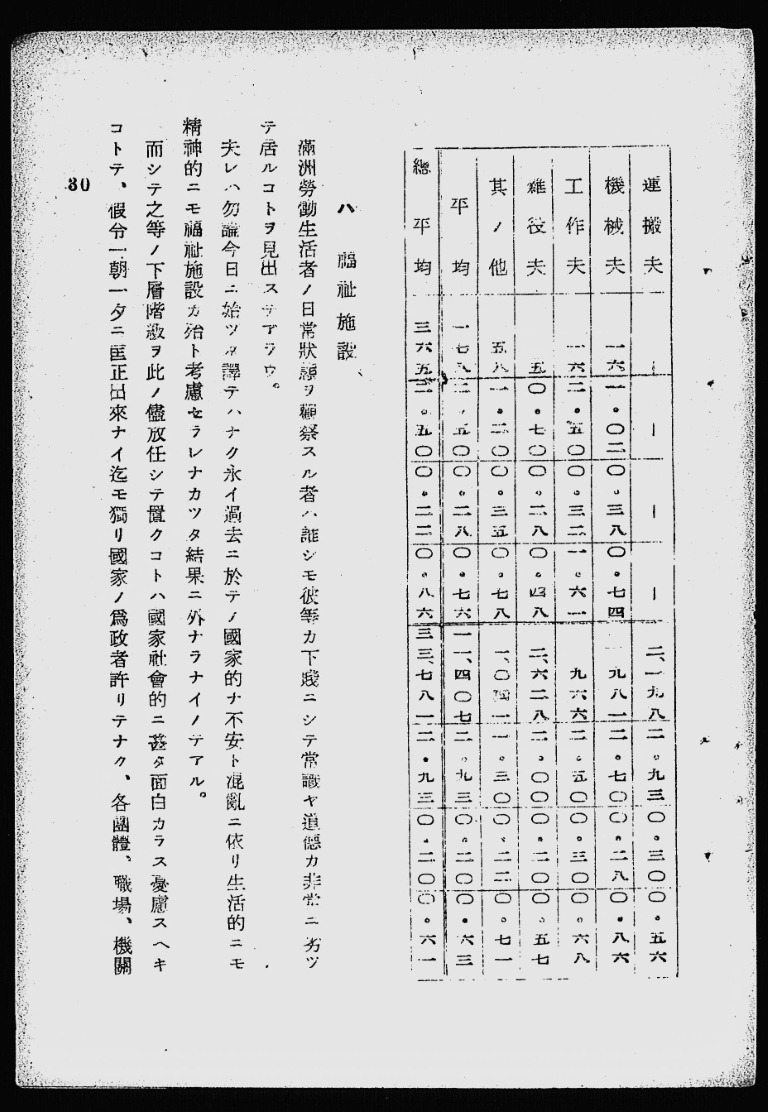 運搬夫 | ｜ | ｜ | ｜ | ｜ | 二、一九八 | 二・九三 | 〇・三〇 | 〇・五六
機械夫 | 一六 | 一・〇二 | 〇・三八 | 〇・七四 | 九八一 | 二・七〇 | 〇・二八 | 〇・八六
工作夫 | 一六 | 二・五〇 | 〇・三二 | 一・六一 | 九六六 | 二・五〇 | 〇・三〇 | 〇・六八
雜役夫 | 五 | 〇・七〇 | 〇・二八 | 〇・四八 | 二、六二八 | 二・〇〇 | 〇・二〇 | 〇・五七
其ノ他 | 五八 | 一・二〇 | 〇・三五 | 〇・七八 | 一、〇四一 | 一・三〇 | 〇・二二 | 〇・七一
平均 | 一七八 | 二・五〇 | 〇・二八 | 〇・七六 | 一一、四〇七 | 二・九三 | 〇・二〇 | 〇・六三
總平均 | 三六五 | 二・五〇 | 〇・二二 | 〇・八六 | 三三、七八一 | 二・九三 | 〇・二〇 | 〇・六一
ハ 福祉施設、
滿洲勞働生活者ノ日常狀態ヲ觀察スル者ハ誰シモ彼等カ下賤ニシテ常識ヤ道德カ非常ニ劣ツ
テ居ルコトヲ見出ステアラウ。
夫レハ勿論今日ニ始ツタ譯テハナク永イ過去ニ於テノ國家的ナ不安ト混亂ニ依リ生活的ニモ
精神的ニモ福祉施設カ殆ト考慮セラレナカツタ結果ニ外ナラナイノテアル。
而シテ之等ノ下層階級ヲ此ノ儘放任シテ置クコトハ國家社會的ニ甚タ面白カラス憂慮スヘキ
コトテ、假令一朝一夕ニ匡正出來ナイ迄モ獨リ國家ノ爲政者許リテナク、各團體、職場、機關
30